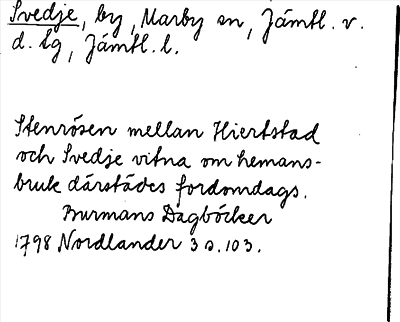 Svedje, by, Marby sn, Jämtl. v.
d. tg, Jämtl. l.
Stenrösen mellan Hiertstad
och Svedje vitna om hemans-
bruk därstädes fordomdags.
Burmans Dagböcker
1798 Nordlander 3 s. 103.